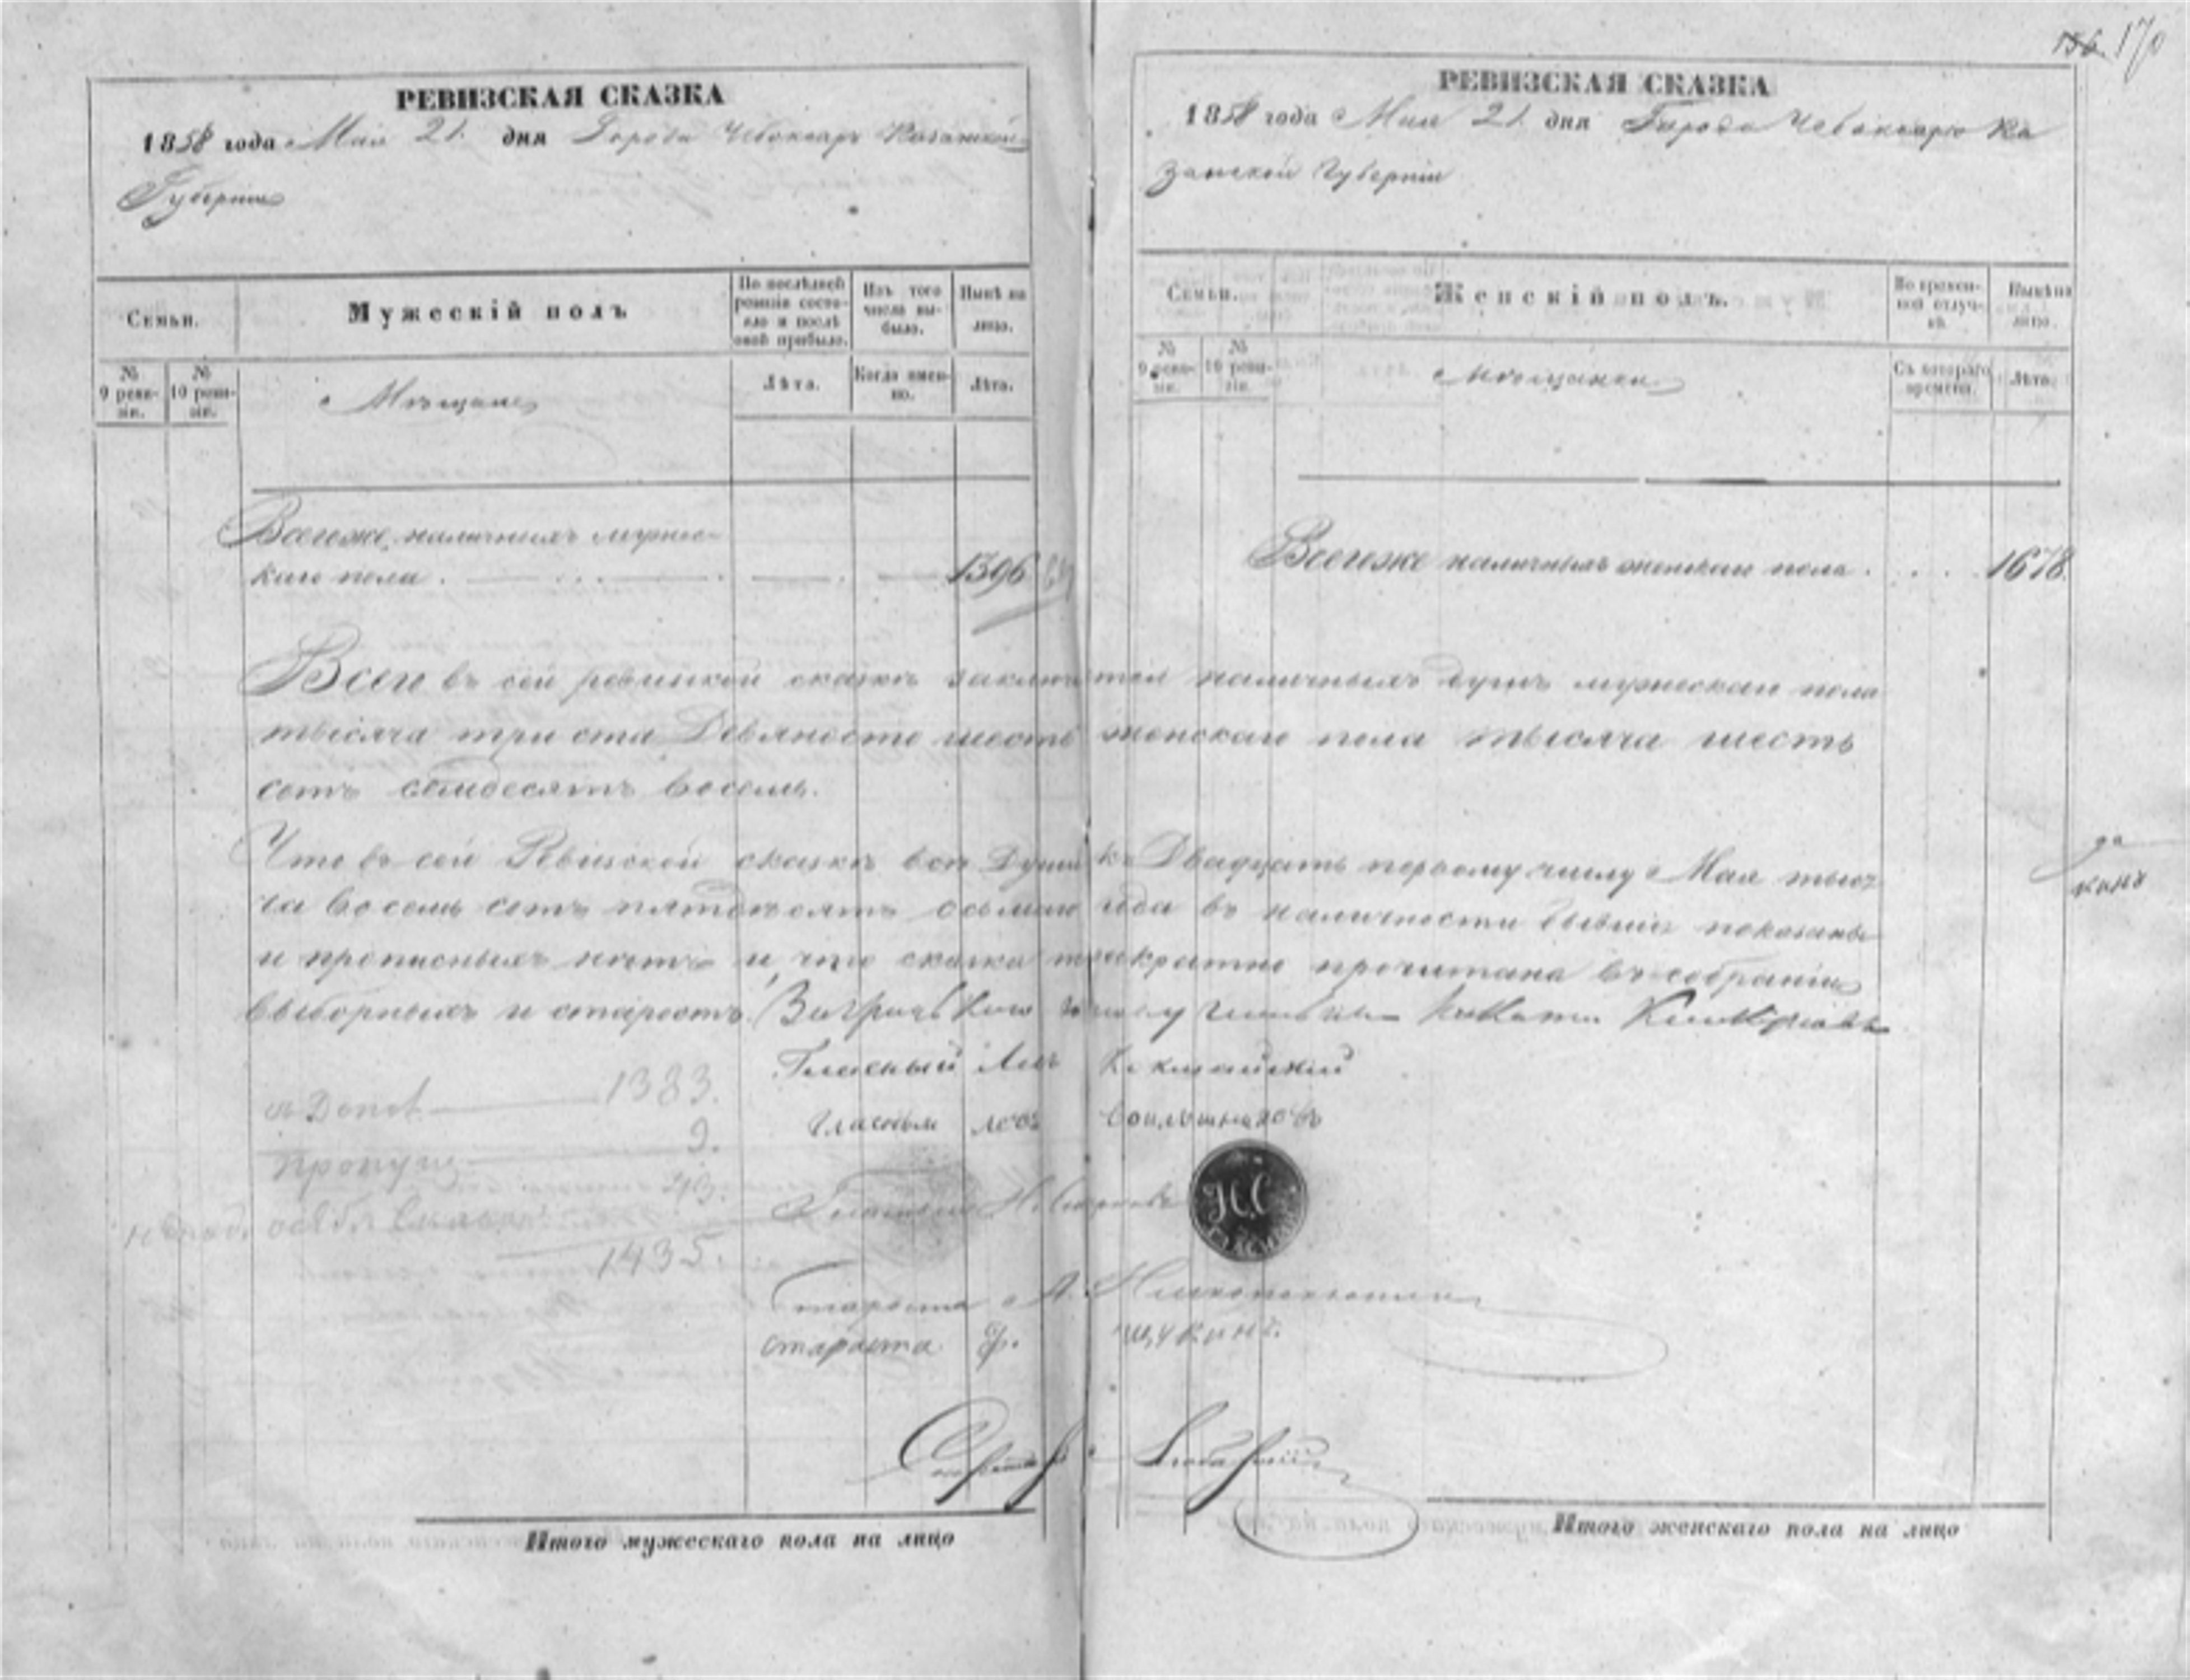 170
РЕВИЗСКАЯ СКАЗКА
1858 года Мая 21. дня Города Чебоксаръ Казанской
Губерніи
Семьи.
Мужескій полъ
По послѣдней ревизіи состояло и послѣ оной прибыло.
Изъ того числа выбыло.
Нынѣ на лицо.
№ 9 ревизіи.
№ 10 ревизіи.
Мѣщане
Лѣта.
Когда именно.
Лѣта.
Всегоже наличныхъ мужес-
каго пола . 1396
РЕВИЗСКАЯ СКАЗКА
1858 года Мая 21. дня Города Чебоксаръ Ка
занской Губерніи
Семьи.
Женскій полъ.
Во временной отлучкѣ.
Нынѣ на лицо.
№ 9 ревизіи.
№ 10 ревизіи.
Мѣщанки
Съ котораго времени.
Лѣта.
Всегоже наличныхъ женскаго пола . . . . 1678.
Всего въ сей ревизской сказкѣ заключается наличныхъ душъ мужескаго пола
тысяча три ста Девяносто шесть женскаго пола тысяча шесть
сотъ семдесятъ восемь.
Что въ сей Ревизской сказкѣ всѣ Души къ Двадцать первому числу Мая тыся
ча восемь сотъ пятдесятъ осьмаго года въ наличности бывшіе показаны
и прописныхъ нѣтъ и что сказка троекратно прочитана въ собраніи
выборныхъ и старостъ.
Гласный
Гласный
Староста
староста Ф. Щукинъ.
1383.
9.
43.
1435.
Н.С
Итого мужескаго пола на лицо
Итого женскаго пола на лицо